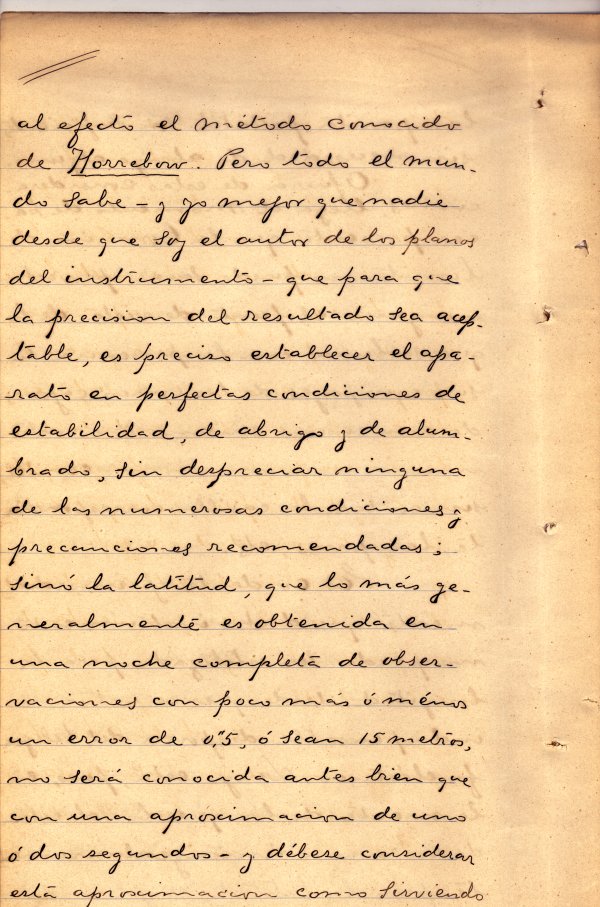 al efecto el método conocido
de Horrebow. Pero todo el mun-
do sabe – y yo mejor que nadie
desde que soy el autor de los planos
del instrumento – que para que
la precision del resultado sea acep-
table, es preciso establecer el apa-
rato en perfectas condiciones de
estabilidad, de abrigo y de alum-
brado, sin despreciar ninguna
de las numerosas condiciones y
precauciones recomendadas;
sinó la latitud, que lo más ge-
neralmente es obtenida en
una noche completa de obser-
vaciones con poco más ó ménos
un error de 0,"5, ó sean 15 metros,
no será conocida antes bien que
con una aproximacion de uno
ó dos segundos – y débese considerar
esta aproximacion como sirviendo